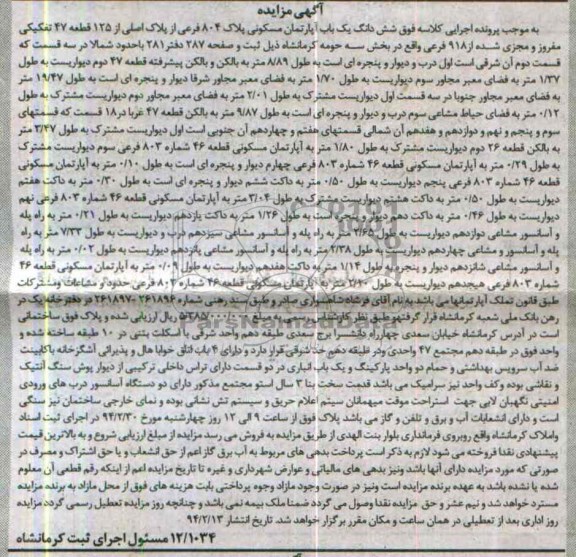 آگهی مزایده
به موجب پرونده اجرایی کلاسه فوق شش دانگ یک باب آپارتمان مسکونی پلاک ۸۰۴ فرعی از پلاک اصلی از ۱۲۵ قطعه ۴۷ تفکیکی
مفروز و مجزی شده از ۹۱۸ فرعی واقع در بخش سه حومه کرمانشاه ذیل ثبت و صفحه ۲۸۷ دفتر ۲۸۱ باحدود شمالا در سه قسمت که
قسمت دوم آن شرقی است اول درب و دیوار و پنجره ای است به طول ۸/۸۹ متر به بالکن و بالکن پیشرفته قطعه ۴۷ دوم دیواریست به طول
۱/۳۷ متر به فضای معبر مجاور سوم دیواریست به طول ۱/۷۰ متر به فضای معبر مجاور شرقا دیوار و پنجره ای است به طول ۱۹/۴۷ متر
به فضای معبر مجاور جنوبا در سه قسمت اول دیواریست مشترک به طول ۲/۰۱ متر به فضای معبر مجاور دوم دیواریست مشترک به طول
۰/۱۲ متر به فضای حیاط مشاعی سوم درب و دیوار و پنجره ای است به طول ۹/۸۷ متر به بالکن قطعه ۴۷ غربا در ۱۸ قسمت که قسمتهای
سوم و پنجم و نهم و دوازدهم و هفدهم آن شمالی قسمتهای هفتم و چهاردهم آن جنوبی است اول دیواریست مشترک به طول ۳/۴۷ متر
به بالکن قطعه ۲۶ دوم دیواریست مشترک به طول ۱/۸۰ متر به آپارتمان مسکونی قطعه ۴۶ شماره ۸۰۳ فرعی سوم دیواریست مشترک
به طول ۰/۲۹ متر به آپارتمان مسکونی قطعه ۴۶ شماره ۸۰۳ فرعی چهارم دیوار و پنجره ای است به طول ۰/۱۰ متر به آپارتمان مسکونی
قطعه ۴۶ شماره ۸۰۳ فرعی پنجم دیواریست به طول ۰/۵۰ متر به داکت ششم دیوار و پنجره ای است به طول ۰/۳۰ متر به داکت هفتم
دیواریست به طول ۰/۵۰ متر به داکت هشتم دیواریست مشترک به طول ۳/۰۴ متر به آپارتمان مسکونی قطعه ۴۶ شماره ۸۰۳ فرعی نهم
دیواریست به طول ۰/۴۶ متر به داکت دهم دیوار و پنجره است به طول ۱/۲۶ متر به داکت یازدهم دیواریست به طول ۰/۲۱ متر به راه پله
و آسانسور مشاعی دوازدهم دیواریست به طول ۲/۶۵ متر به راه پله و آسانسور مشاعی سیزدهم درب و دیواریست به طول ۷/۳۳ متر به راه
پله و آسانسور و مشاعی چهاردهم دیواریست به طول ۲/۳۸ متر به راه پله و آسانسور مشاعی پانزدهم دیواریست به طول ۰/۰۲ متر به راه پله
و آسانسور مشاعی شانزدهم دیوار و پنجره به طول ۱/۱۴ متر به داکت هفدهم دیواریست به طول ۰/۰۹ متر به آپارتمان مسکونی قطعه ۴۶
شماره ۸۰۳ فرعی هیجدهم دیواریست به طول ۲/۱۰ متر به آپارتمان مسکونی قطعه ۴۶ شماره ۸۰۳ فرعی حدود و مشاعات ومشترکات
طبق قانون تملک آپارتمانها می باشد به نام آقای فرشاد شاهسواری صادر و طبق سند رهنی شماره ۲۶۱۸۹۶-۲۶۱۸۹۷ در دفترخانه یک در
رهن بانک ملی شعبه کرمانشاه قرار گرفته طبق نظر کارشناس رسمی به مبلغ ۵/۳۸۵/۰۰۰/۰۰۰ ریال ارزیابی شده و پلاک فوق ساختمانی
است در آدرس کرمانشاه خیابان سعدی چهارراه دلگشا برج سعدی طبقه دهم واحد شرقی با اسکلت بتنی در ۱۰ طبقه ساخته شده و
واحد فوق در طبقه دهم مجتمع ۴۷ واحدی ودر طبقه دهم حد شرقی قرار دارد و دارای ۴ باب اتاق خواب هال و پذیرائی آشگزخانه باکابینت
ضد آب سرویس بهداشتی و حمام دو واحد پارکینگ و یک باب انباری در دو قسمت دارای تراس داخلی ترکیبی از دیوار پوش سنگ آنتیک
و نقاشی بوده و کف واحد نیز سرامیک می باشد قدمت سخت بنا ۳ سال استو مجتمع مذکور دارای دو دستگاه آسانسور درب های ورودی
امنیتی نگهبان لابی جهت استراحت موقت میهمانان سیتم اعلام حریق و سیستم تش نشانی بوده و نمای خارجی ساختمان نیز سنگی
است و دارای انشعابات آب و برق و تلفن و گاز می باشد پلاک فوق از ساعت ۹ الی ۱۲ روز چهارشنبه مورخ ۹۴/۲/۳۰ در اجرای ثبت اسناد
واملاک کرمانشاه واقع روبروی فرمانداری بلوار بنت الهدی از طریق مزایده به فروش می رسد مزایده از مبلغ ارزیابی شروع و به بالاترین قیمت
پیشنهادی نقدا فروخته می شود لازم به ذکر است پرداخت بدهی های مربوط به آب برق گاز اعم از حق انشعاب و یا حق اشتراک و مصرف در
صورتی که مورد مزایده دارای آنها باشد ونیز بدهی های مالیاتی و عوارض شهرداری و غیره تا تاریخ مزایده اعم از اینکه رقم قطعی آن معلوم
شده یا نشده باشد به عهده برنده مزایده است ونیز در صورت وجود مازاد وجوه پرداختی بابت هزینه های فوق از محل مازاد به برنده مزایده
مسترد خواهد شد و نیم عشر و حق مزایده نقدا وصول می گردد ضمنا ملک بیمه نمی باشد و چنانچه روز مزایده تعطیل رسمی گردد مزایده
روز اداری بعد از تعطیلی در همان ساعت و مکان مقرر برگزار خواهد شد. تاریخ انتشار ۹۴/۲/۱۳
۱۲/۱۰۳۴ مسئول اجرای ثبت کرمانشاه